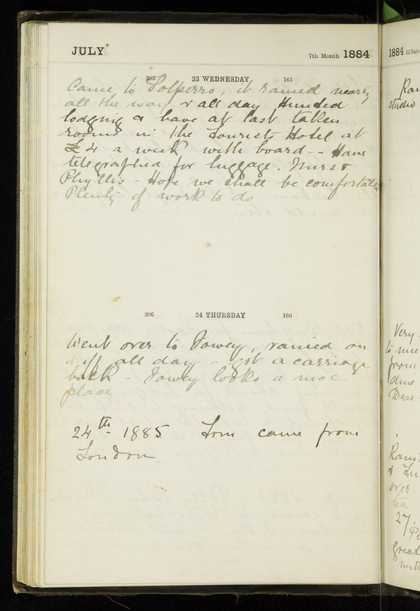 JULY
7th Month 1884
205 23 WEDNESDAY 161
Came to Polperro, it rained nearly
all the way & all day Hunted
lodging & have at last taken
rooms in the Tourists Hotel at
£4 a week with board - Have
telegraphed for luggage. Nurse
Phyllis - Hope we shall be comfortable
Plenty of work to do
206 24 THURSDAY 160
Went over to Fowey, rained on
& off all day - got a carriage
back - Fowey looks a nice
place
24th - 1885 Tom came from
London
1884
Ran
studio
Very
to me
from
Dese
Rain
over
27
great